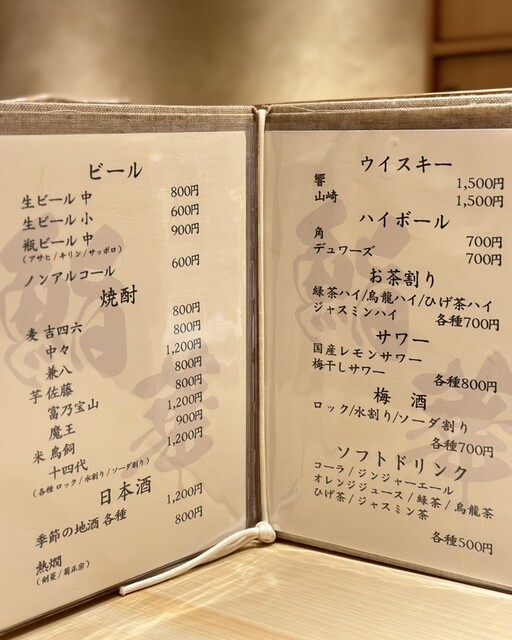 ビール
生ビール 中 800円
生ビール 小 600円
瓶ビール 中 900円
(アサヒ/キリン/サッポロ)
ノンアルコール 600円
焼酎
麦 吉四六 800円
中々 800円
兼八 1,200円
芋 佐藤 800円
富乃宝山 800円
魔王 1,200円
米 鳥飼 900円
十四代 1,200円
(各種ロック/水割り/ソーダ割り)
日本酒
季節の地酒 各種 1,200円
熱燗 800円
(剣菱/菊正宗)
ウイスキー
響 1,500円
山崎 1,500円
ハイボール
角 700円
デュワーズ 700円
お茶割り
緑茶ハイ/烏龍ハイ/ひげ茶ハイ
ジャスミンハイ 各種700円
サワー
国産レモンサワー
梅干しサワー
各種800円
梅 酒
ロック/水割り/ソーダ割り
各種700円
ソフトドリンク
コーラ/ジンジャーエール
オレンジジュース/緑茶/烏龍茶
ひげ茶/ジャスミン茶
各種500円